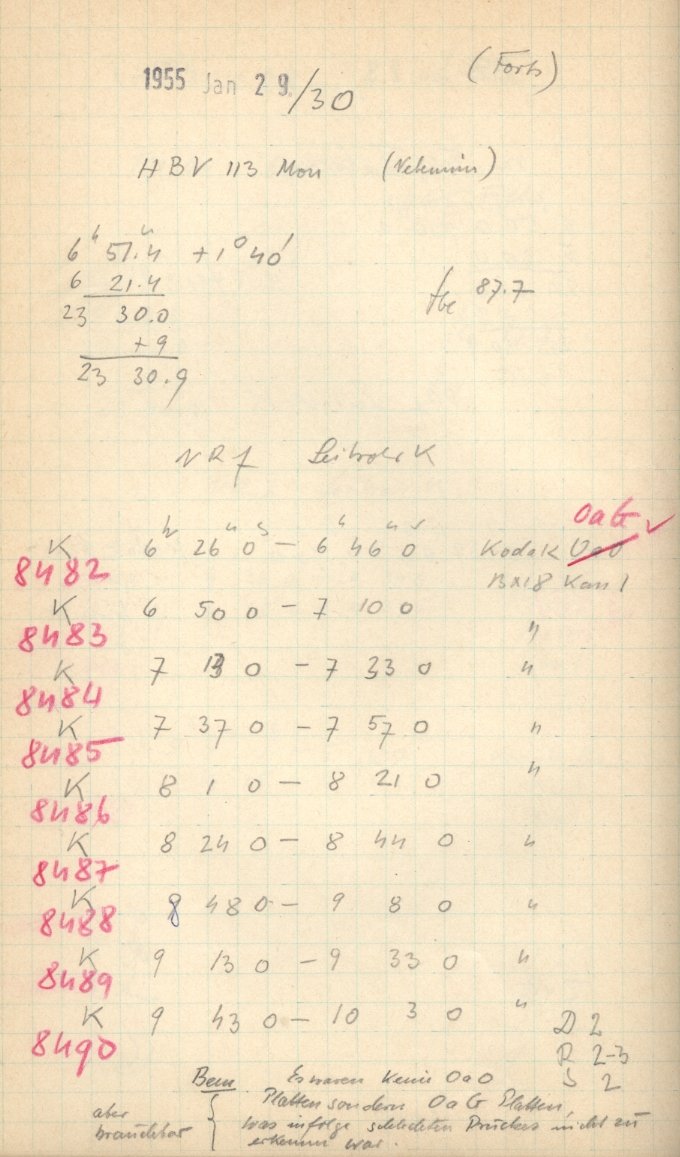 (Forts)
1955 Jan 29./30
HBV 113 Mon
6h 51.4m +1° 40'
6 21.4
23 30.0
+9
23 30.9
87.7
NRf K
K 8482 6h 26m 0s – 6h 46m 0s Kodak OaO OaG ✓
Kan 1
K 8483 6 50 0 – 7 10 0 "
K 8484 7 13 0 – 7 33 0 "
K 8485 7 37 0 – 7 57 0 "
K 8486 8 1 0 – 8 21 0 "
K 8487 8 24 0 – 8 44 0 "
K 8488 8 48 0 – 9 8 0 "
K 8489 9 13 0 – 9 33 0 "
K 8490 9 43 0 – 10 3 0 "
D 2
R 2-3
S 2
Bem Es waren keine OaO
Platten sondern OaG Platten,
aber brauchbar { was infolge schlechten Druckes nicht zu
erkennen war.